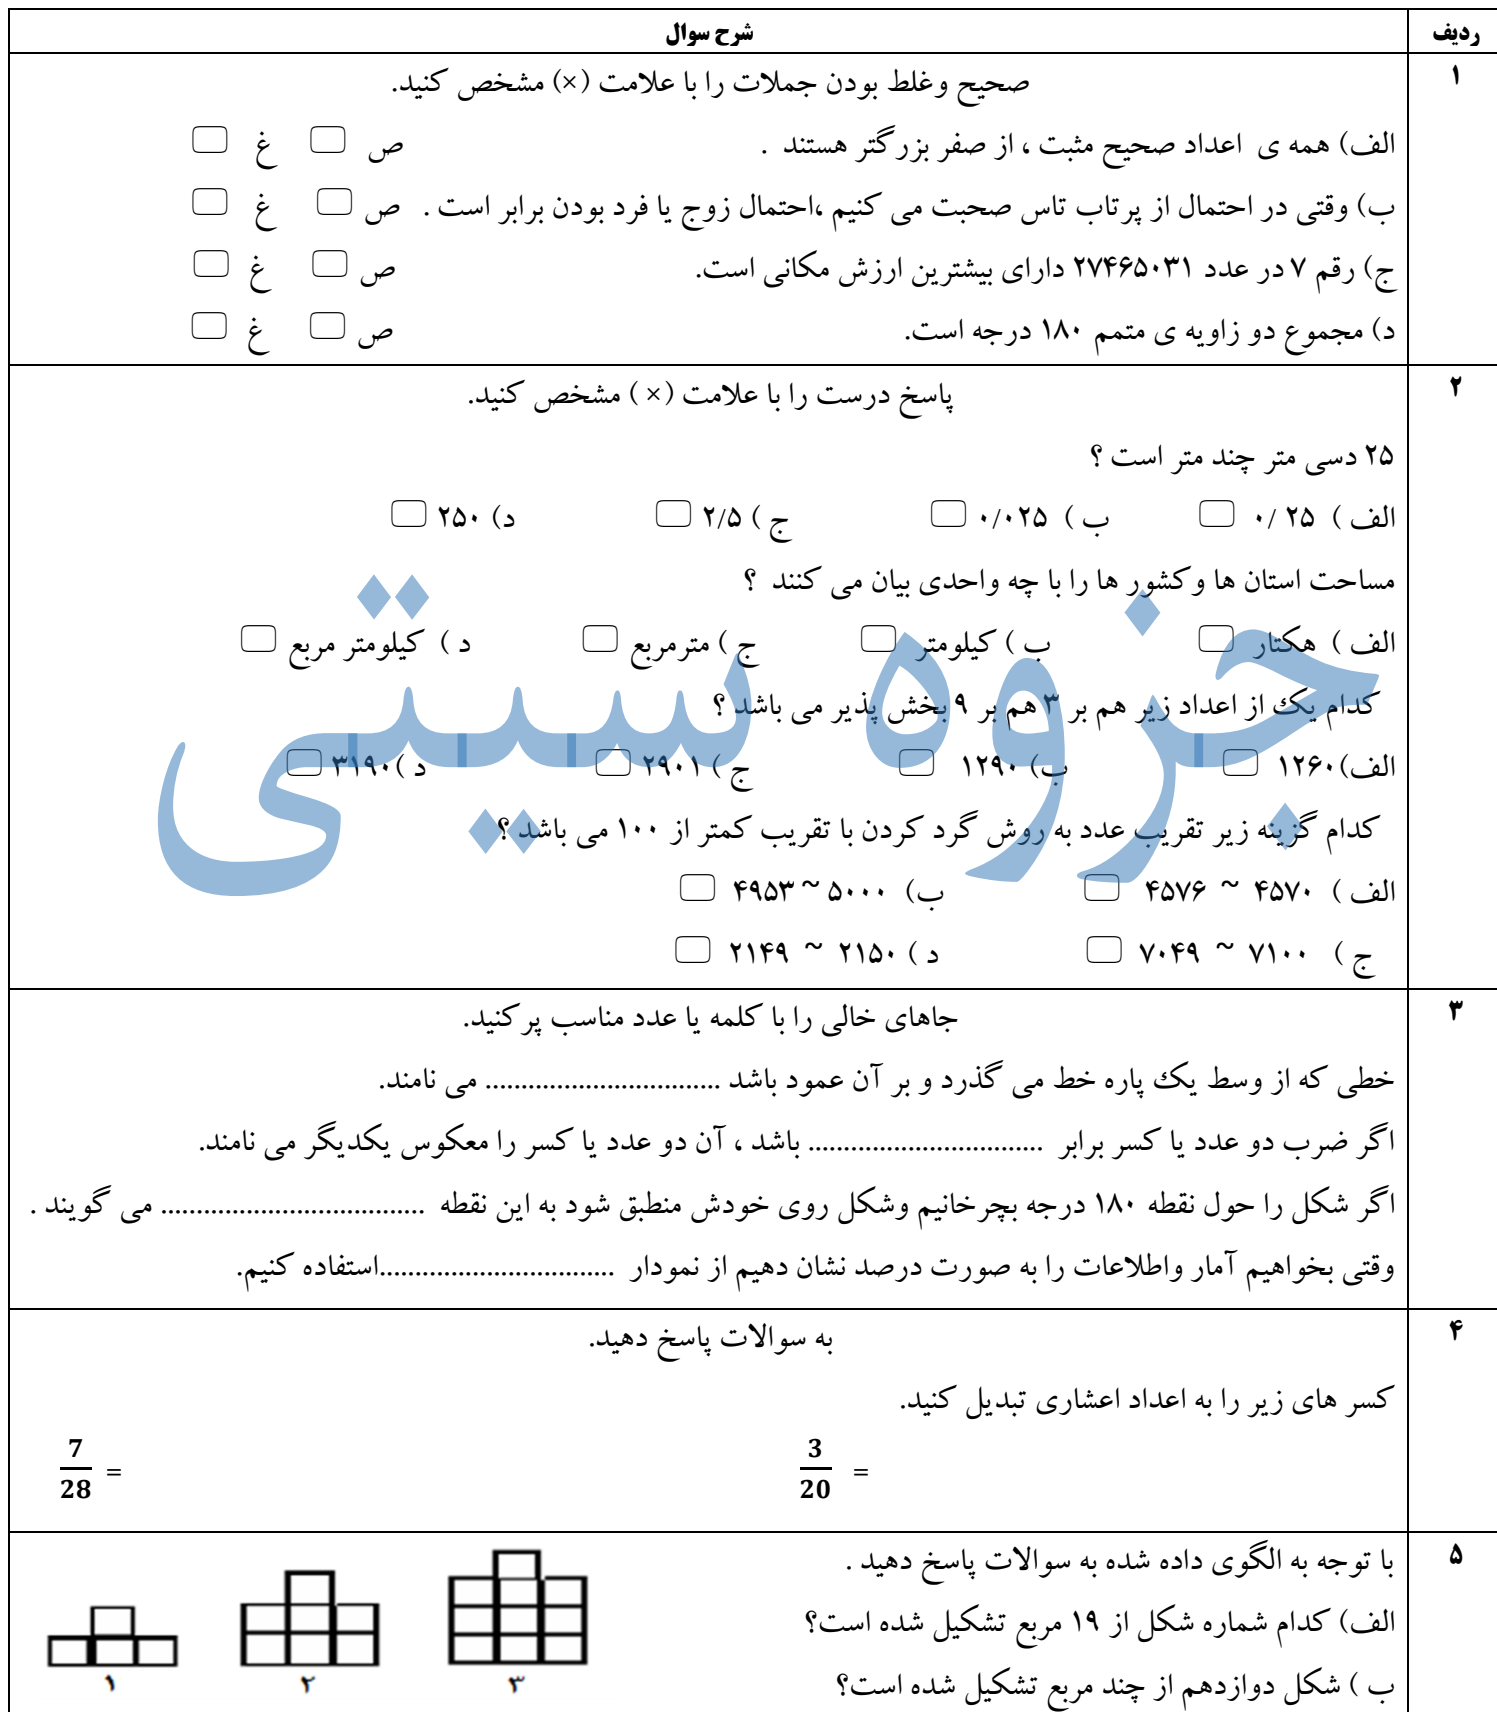 ردیف شرح سوال
۱ صحیح وغلط بودن جملات را با علامت (×) مشخص کنید.
الف) همه ی اعداد صحیح مثبت ، از صفر بزرگتر هستند . ص غ
ب) وقتی در احتمال از پرتاب تاس صحبت می کنیم ،احتمال زوج یا فرد بودن برابر است . ص غ
ج) رقم ۷ در عدد ۲۷۴۶۵۰۳۱ دارای بیشترین ارزش مکانی است. ص غ
د) مجموع دو زاویه ی متمم ۱۸۰ درجه است. ص غ
۲ پاسخ درست را با علامت (× ) مشخص کنید.
۲۵ دسی متر چند متر است ؟
الف ) ۰/ ۲۵ ب ) ۰/۰۲۵ ج ) ۲/۵ د) ۲۵۰
مساحت استان ها وکشور ها را با چه واحدی بیان می کنند ؟
الف ) هکتار ب ) کیلومتر ج ) مترمربع د ) کیلومتر مربع
کدام یک از اعداد زیر هم بر ۳ هم بر ۹ بخش پذیر می باشد ؟
الف)۱۲۶۰ ب) ۱۲۹۰ ج ) ۲۹۰۱ د )۳۱۹۰
کدام گزینه زیر تقریب عدد به روش گرد کردن با تقریب کمتر از ۱۰۰ می باشد ؟
الف ) ۴۵۷۰ ~ ۴۵۷۶ ب) ۵۰۰۰ ~ ۴۹۵۳
ج ) ۷۱۰۰ ~ ۷۰۴۹ د ) ۲۱۵۰ ~ ۲۱۴۹
جزوه سیتی
۳ جاهای خالی را با کلمه یا عدد مناسب پرکنید.
خطی که از وسط یک پاره خط می گذرد و بر آن عمود باشد ................................. می نامند.
اگر ضرب دو عدد یا کسر برابر ................................. باشد ، آن دو عدد یا کسر را معکوس یکدیگر می نامند.
اگر شکل را حول نقطه ۱۸۰ درجه بچرخانیم وشکل روی خودش منطبق شود به این نقطه ..................................... می گویند .
وقتی بخواهیم آمار واطلاعات را به صورت درصد نشان دهیم از نمودار .................................استفاده کنیم.
۴ به سوالات پاسخ دهید.
کسر های زیر را به اعداد اعشاری تبدیل کنید.
3/20 = 7/28 =
۵ با توجه به الگوی داده شده به سوالات پاسخ دهید .
الف) کدام شماره شکل از ۱۹ مربع تشکیل شده است؟
ب ) شکل دوازدهم از چند مربع تشکیل شده است؟
۱ ۲ ۳